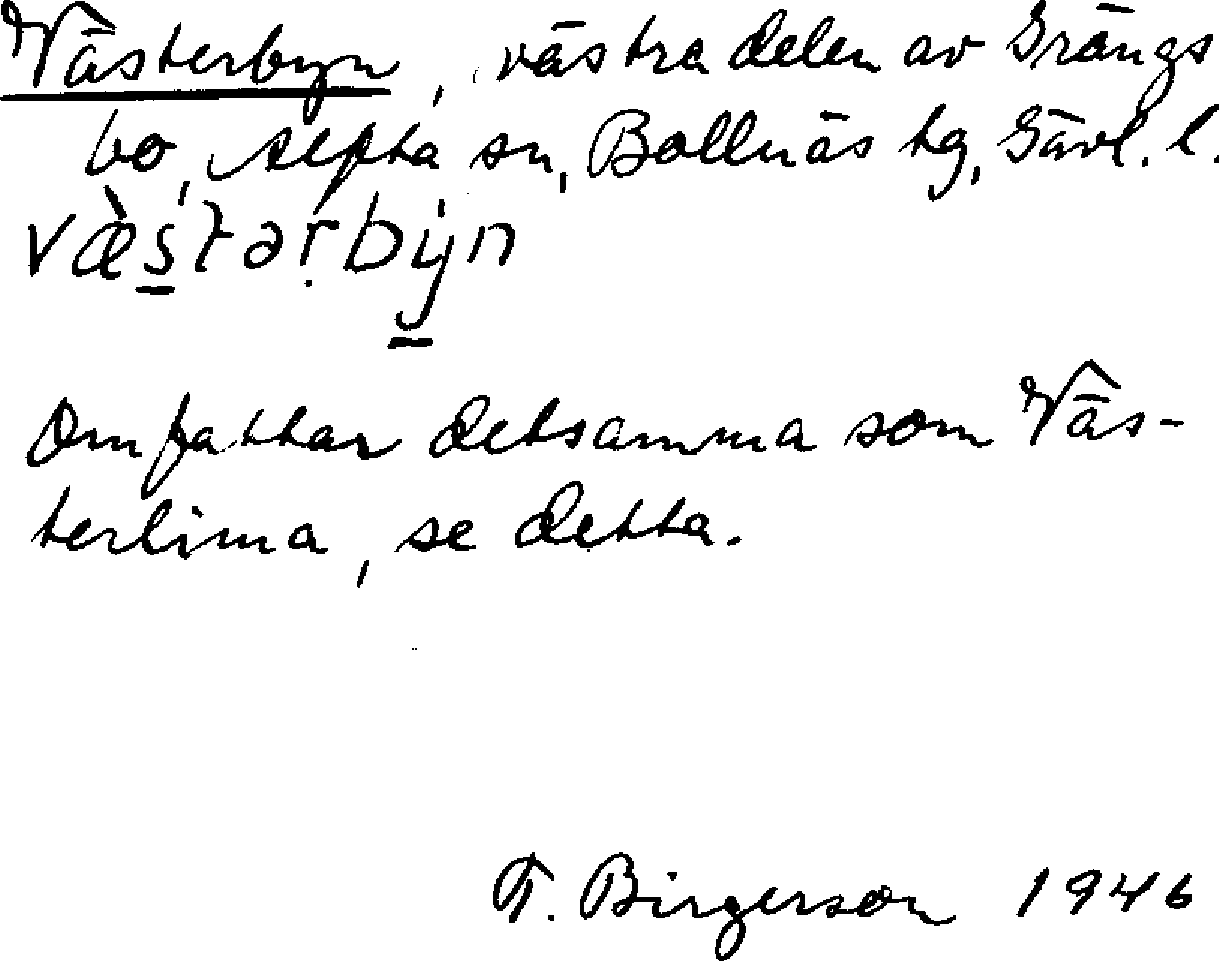 Västerbyn, västra delen av Grängs
bo, Alfta sn, Bollnäs tg, Gävl. l.
væ̀star̩byn
Omfattar detsamma som Väs-
terlima, se detta.
T. Birgerson 1946